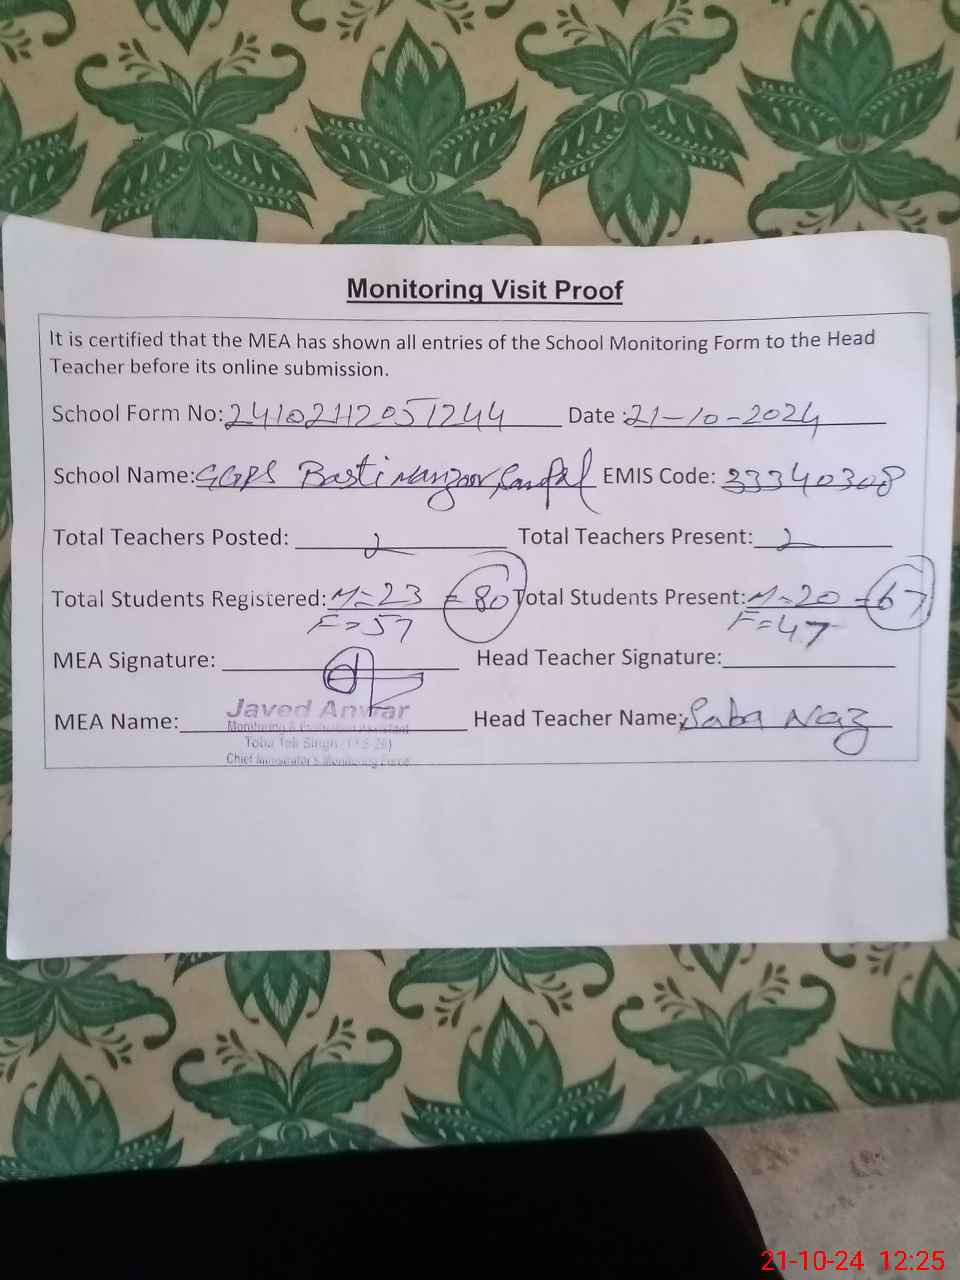 Monitoring Visit Proof
It is certified that the MEA has shown all entries of the School Monitoring Form to the Head
Teacher before its online submission.
School Form No: 24102112051244 Date : 21-10-2024
School Name: GGPS Basti Manzoor EMIS Code: 33340308
Total Teachers Posted: 2 Total Teachers Present: 2
Total Students Registered: M=23 = 80 Total Students Present: M=20 = 67
F=57 F=47
MEA Signature: Head Teacher Signature:
MEA Name: Javed Anwar Head Teacher Name: Saba Naz
Monitoring & Evaluation Assistant
Toba Tek Singh
Chief Minister's Monitoring Force
21-10-24 12:25